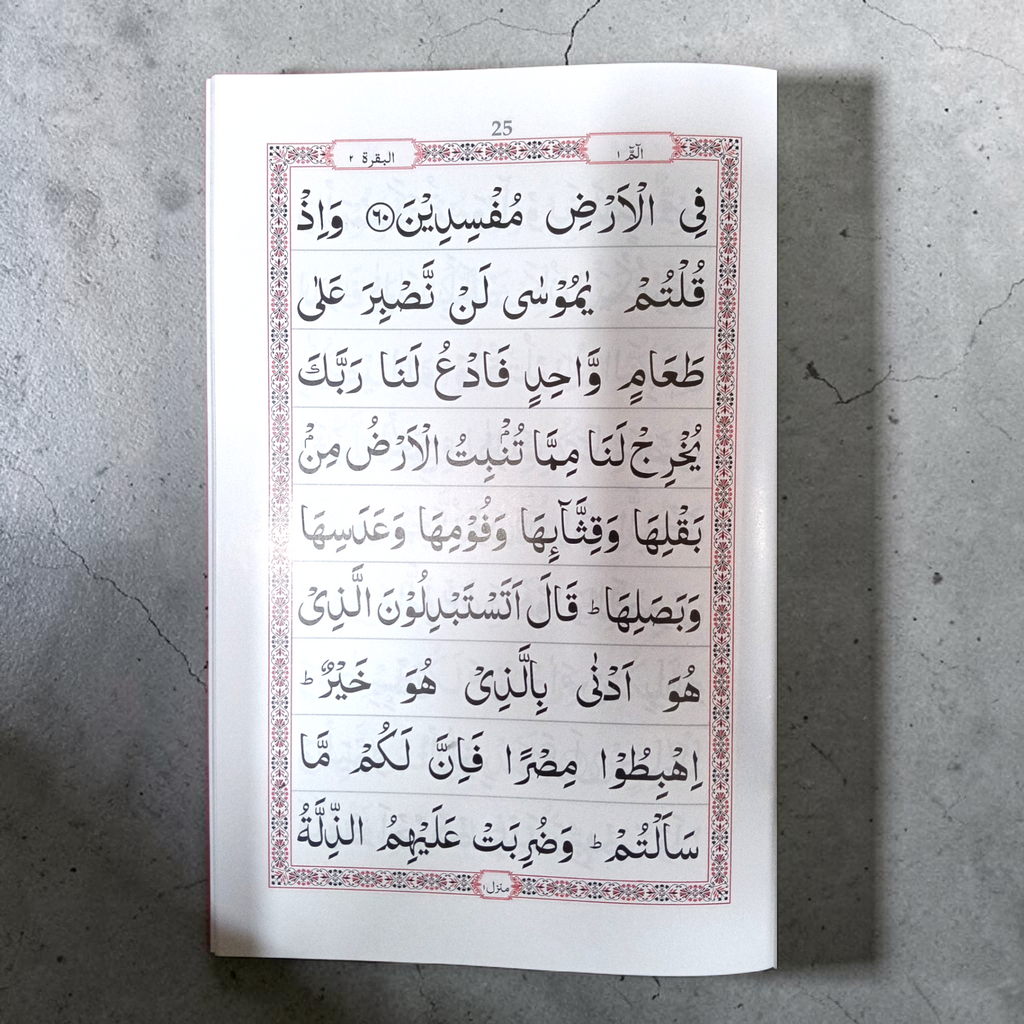 25
الٓمّٓ ١
البقرة ٢
فِى الْاَرْضِ مُفْسِدِيْنَ ۝٦٠ وَاِذْ
قُلْتُمْ يٰمُوْسٰى لَنْ نَّصْبِرَ عَلٰى
طَعَامٍ وَّاحِدٍ فَادْعُ لَنَا رَبَّكَ
يُخْرِجْ لَنَا مِمَّا تُنْۢبِتُ الْاَرْضُ مِنْۢ
بَقْلِهَا وَقِثَّآىِٕهَا وَفُوْمِهَا وَعَدَسِهَا
وَبَصَلِهَا ؕ قَالَ اَتَسْتَبْدِلُوْنَ الَّذِىْ
هُوَ اَدْنٰى بِالَّذِىْ هُوَ خَيْرٌ ؕ
اِهْبِطُوْا مِصْرًا فَاِنَّ لَكُمْ مَّا
سَاَلْتُمْ ؕ وَضُرِبَتْ عَلَيْهِمُ الذِّلَّةُ
منزل ١